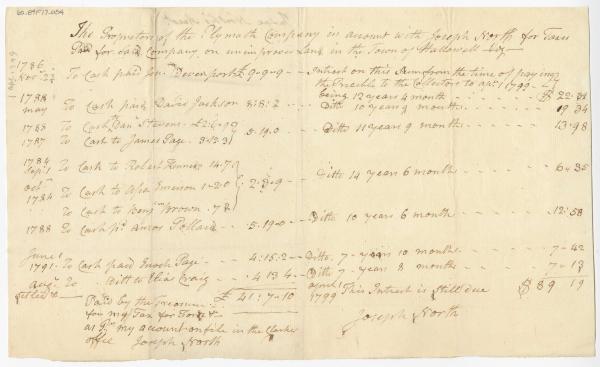 The Propretors of the Plymoth Company in account with Joseph North for Taxes
Paid for said Company on unimproved Land in the Town of Hallowell
1786 Nov 22 To Cash paid Jona Devenport £ 9-9-9 Intrest on this Sum from the time of paying
the Treasurer to the Collectors to apl 1 1799
being 12 years 4 month $ 22.
1788 may To Cash paid Davis Jackson 8:8:2 Ditto 10 years 9 month 19 34
1785 To Cash Danl Stevens £2:6:9
1787 To Cash to James Page 3:12:3 5.19.0 Ditto 11 years 9 month 13-98
1784 Sepr 1 To Cash to Robert Kennedy 14:7
octr 1784 To Cash to Asa Emerson 1-2:0 2:3-9 Ditto 14 years 6 month 6-35
To Cash to Benjm Brown 7:2
1788 To Cash pd Amos Pollard 5-19-0 Ditto 10 years 6 month 12:58
June 1 1791 To Cash paid Enoch Page 4:15:2 Ditto 7-years 10 month 7-42
augt To Ditt to Elias Craig 4 13 4 Ditto 7-years 8 month 7-13
£ 41:7-10 april 1 1799 This Intrest is Still due $ 89 19
Settled
Paid by the Treasurer
for my Tax for
as pr my account on file in the Clarks
offic Joseph North
Joseph North